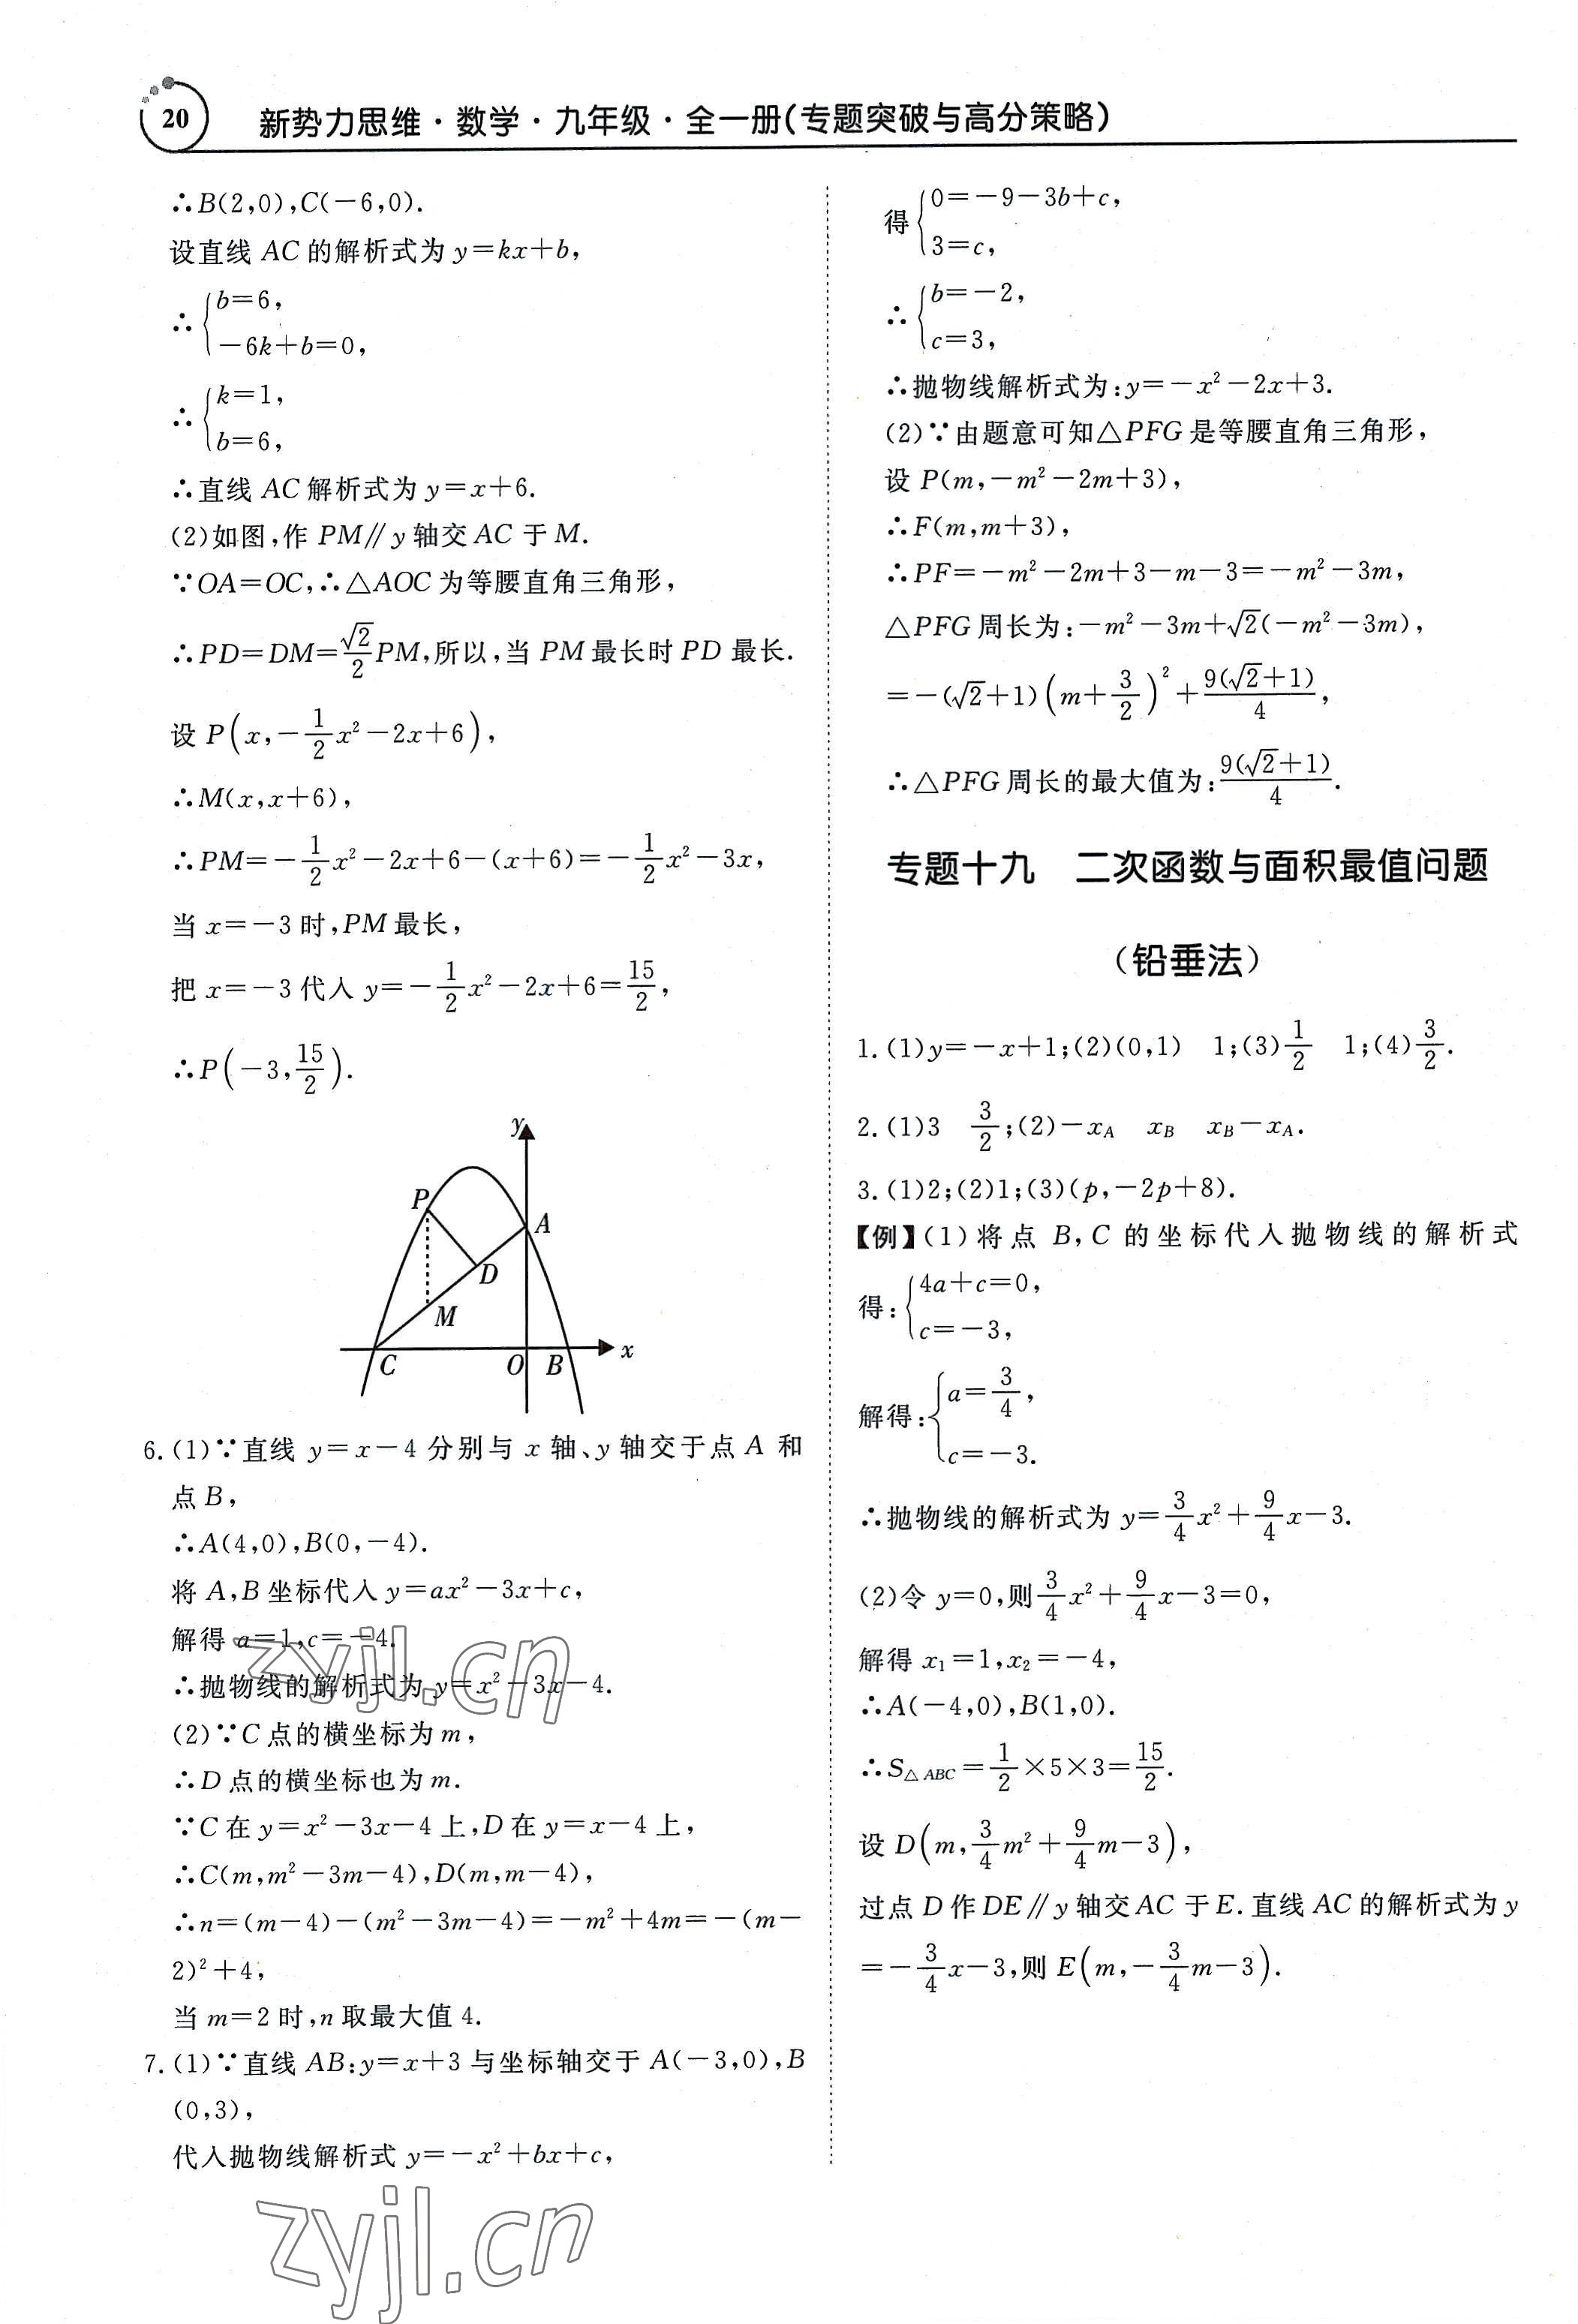 20
新势力思维·数学·九年级·全一册(专题突破与高分策略)
∴B(2,0),C(-6,0).
设直线 AC 的解析式为 y=kx+b,
∴{b=6,
-6k+b=0,
∴{k=1,
b=6,
∴直线 AC 解析式为 y=x+6.
(2)如图,作 PM∥y 轴交 AC 于 M.
∵OA=OC,∴△AOC 为等腰直角三角形,
∴PD=DM=√2/2 PM,所以,当 PM 最长时 PD 最长.
设 P(x,-1/2 x²-2x+6),
∴M(x,x+6),
∴PM=-1/2 x²-2x+6-(x+6)=-1/2 x²-3x,
当 x=-3 时,PM 最长,
把 x=-3 代入 y=-1/2 x²-2x+6=15/2,
∴P(-3,15/2).
y
P
A
D
M
C
O
B
x
6.(1)∵直线 y=x-4 分别与 x 轴、y 轴交于点 A 和
点 B,
∴A(4,0),B(0,-4).
将 A,B 坐标代入 y=ax²-3x+c,
解得 a=1,c=-4.
∴抛物线的解析式为 y=x²-3x-4.
(2)∵C 点的横坐标为 m,
∴D 点的横坐标也为 m.
∵C 在 y=x²-3x-4 上,D 在 y=x-4 上,
∴C(m,m²-3m-4),D(m,m-4),
∴n=(m-4)-(m²-3m-4)=-m²+4m=-(m-
2)²+4,
当 m=2 时,n 取最大值 4.
7.(1)∵直线 AB:y=x+3 与坐标轴交于 A(-3,0),B
(0,3),
代入抛物线解析式 y=-x²+bx+c,
得{0=-9-3b+c,
3=c,
∴{b=-2,
c=3,
∴抛物线解析式为:y=-x²-2x+3.
(2)∵由题意可知△PFG 是等腰直角三角形,
设 P(m,-m²-2m+3),
∴F(m,m+3),
∴PF=-m²-2m+3-m-3=-m²-3m,
△PFG 周长为:-m²-3m+√2(-m²-3m),
=-(√2+1)(m+3/2)²+9(√2+1)/4,
∴△PFG 周长的最大值为:9(√2+1)/4.
专题十九 二次函数与面积最值问题
(铅垂法)
1.(1)y=-x+1;(2)(0,1) 1;(3)1/2 1;(4)3/2.
2.(1)3 3/2;(2)-x_A x_B x_B-x_A.
3.(1)2;(2)1;(3)(p,-2p+8).
【例】(1)将点 B,C 的坐标代入抛物线的解析式
得:{4a+c=0,
c=-3,
解得:{a=3/4,
c=-3.
∴抛物线的解析式为 y=3/4 x²+9/4 x-3.
(2)令 y=0,则3/4 x²+9/4 x-3=0,
解得 x₁=1,x₂=-4,
∴A(-4,0),B(1,0).
∴S△ABC=1/2×5×3=15/2.
设 D(m,3/4 m²+9/4 m-3),
过点 D 作 DE∥y 轴交 AC 于 E.直线 AC 的解析式为 y
=-3/4 x-3,则 E(m,-3/4 m-3).
zyjl.cn
zyjl.cn